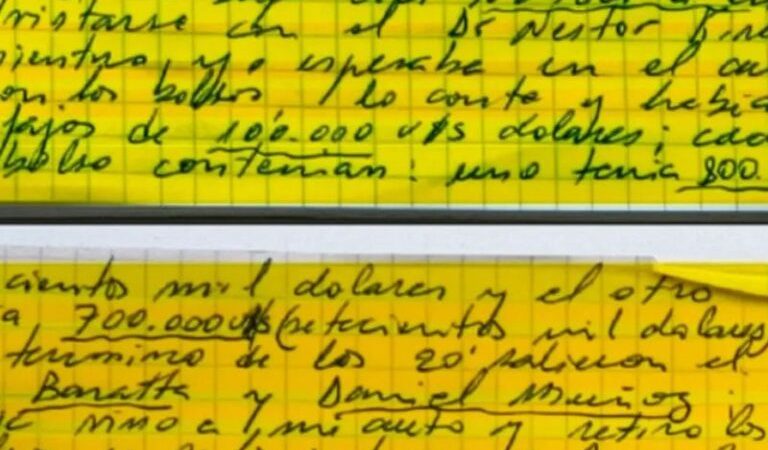 con el Dr Nestor
y/o esperaba en el
los bolsos / lo conte y habia
fajos de 100.000 u$s dolares; cada
bolso contenian: uno tenia 800.
cientos mil dolares y el otro
700.000 u$s (setecientos mil dolares
termino de los 20' salieron el
Baratta y Daniel Muñoz
vino a mi auto y retiro los